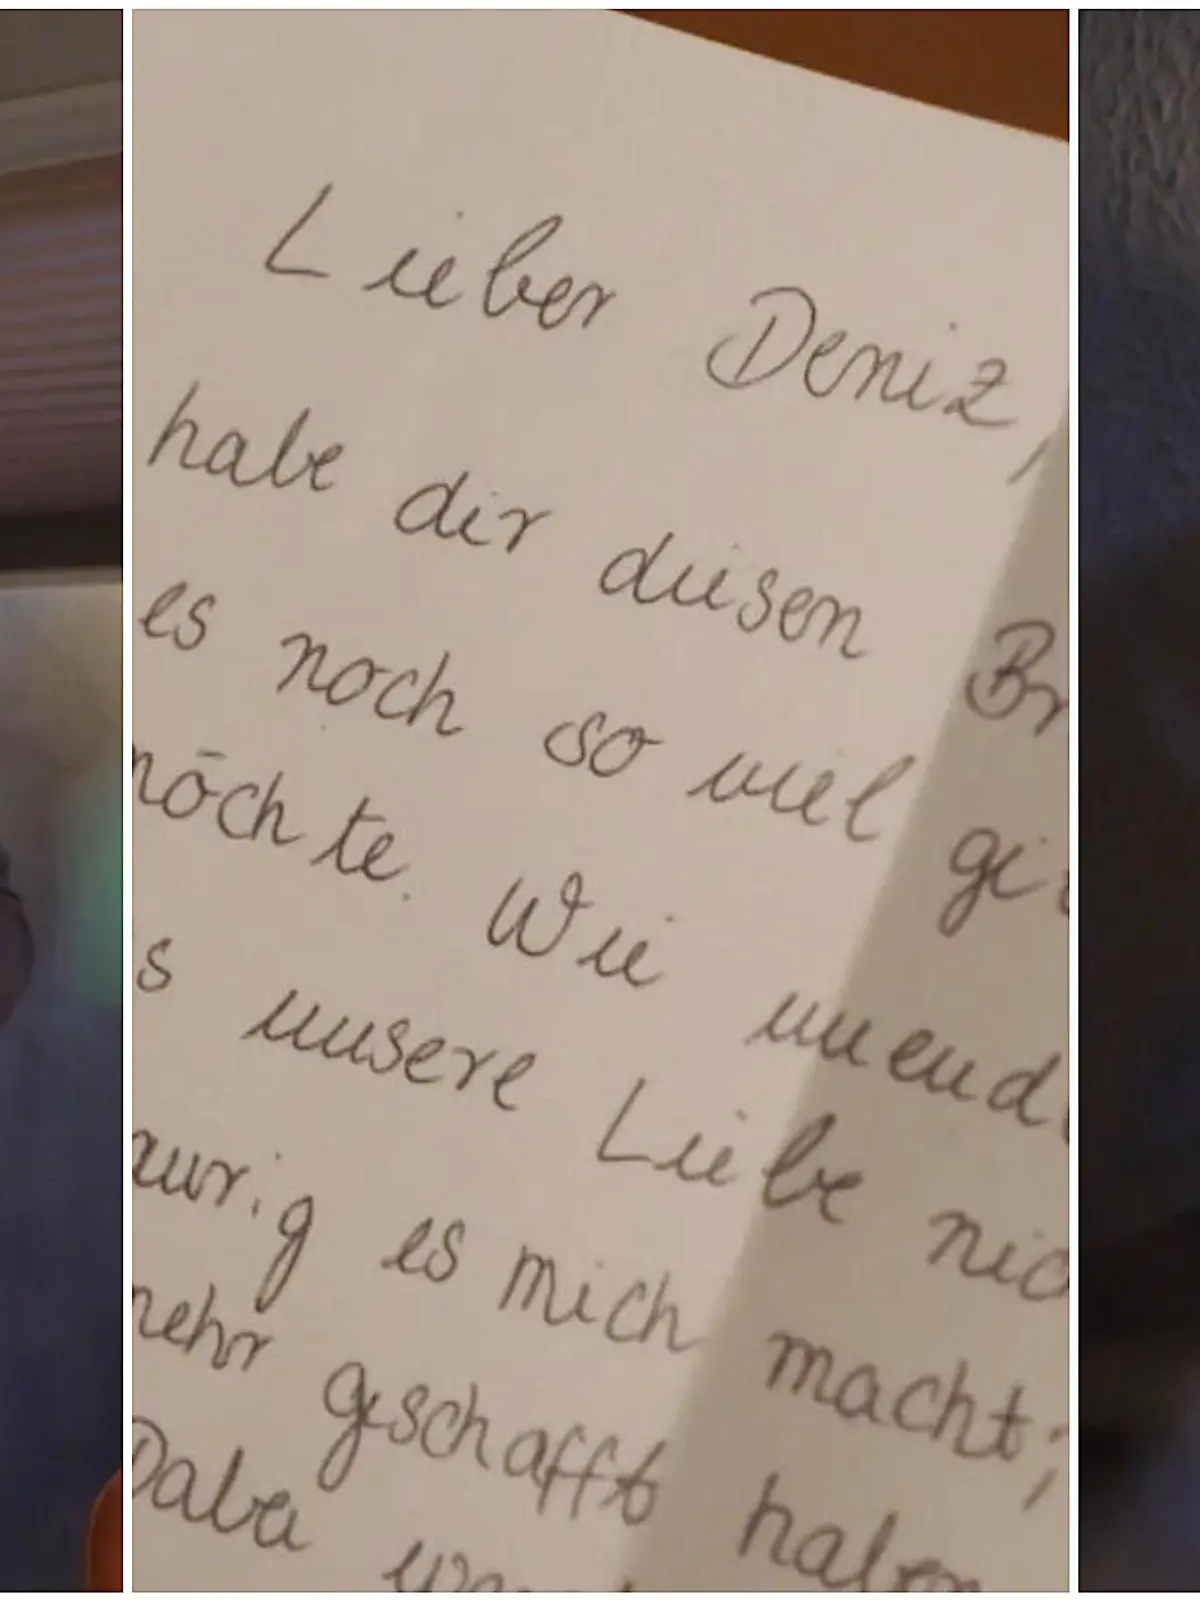 Lieber Deniz,
habe dir diesen Br
es noch so viel gi
möchte. Wie unend
s unsere Liebe nic
aurig es mich macht,
mehr geschafft haben
Dabei